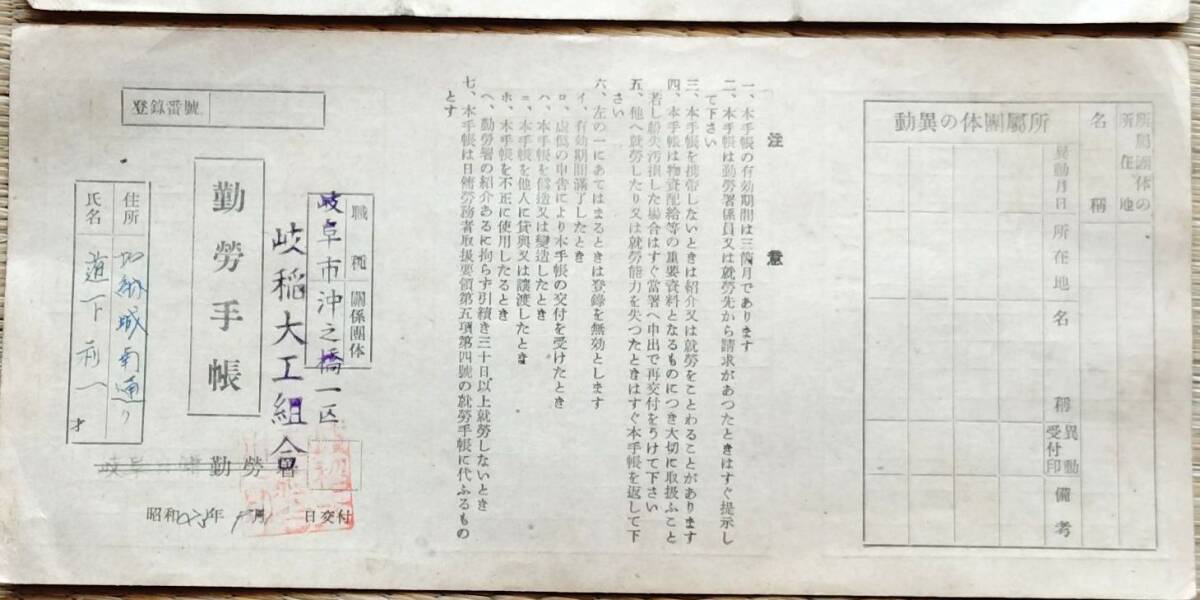 所屬團体の異動
所屬團体の
所在地
名稱
異動月日
所在地
名稱
異動受付印
備考
注意
一、本手帳の有効期間は三箇月であります
二、本手帳は勤勞署係員又は就勞先から請求があつたときはすぐ提示し
て下さい
三、本手帳を携帶しないときは紹介又は就勞をことわることがあります
四、本手帳は物資配給等の重要資料となるものにつき大切に取扱ふこと
若し紛失汚損した場合はすぐ當署へ申出で再交付をうけて下さい
五、他へ就勞したり又は就勞能力を失つたときはすぐ本手帳を返して下
さい
六、左の一にあてはまるときは登錄を無効とします
イ、有効期間滿了したとき
ロ、虛僞の申告により本手帳の交付を受けたとき
ハ、本手帳を僞造又は變造したとき
ニ、本手帳を他人に貸與又は讓渡したとき
ホ、本手帳を不正に使用したるとき
ヘ、勤勞署の紹介あるに拘らず引續き三十日以上就勞しないとき
七、本手帳は日傭勞務者取扱要領第五項第四號の就勞手帳に代ふるもの
とす
登錄番號
職種
關係團体
岐阜市沖之橋一区
岐稲大工組會
勤勞手帳
住所
加納城南通り
氏名
道下利一
才
勤勞
昭和 年 月 日交付